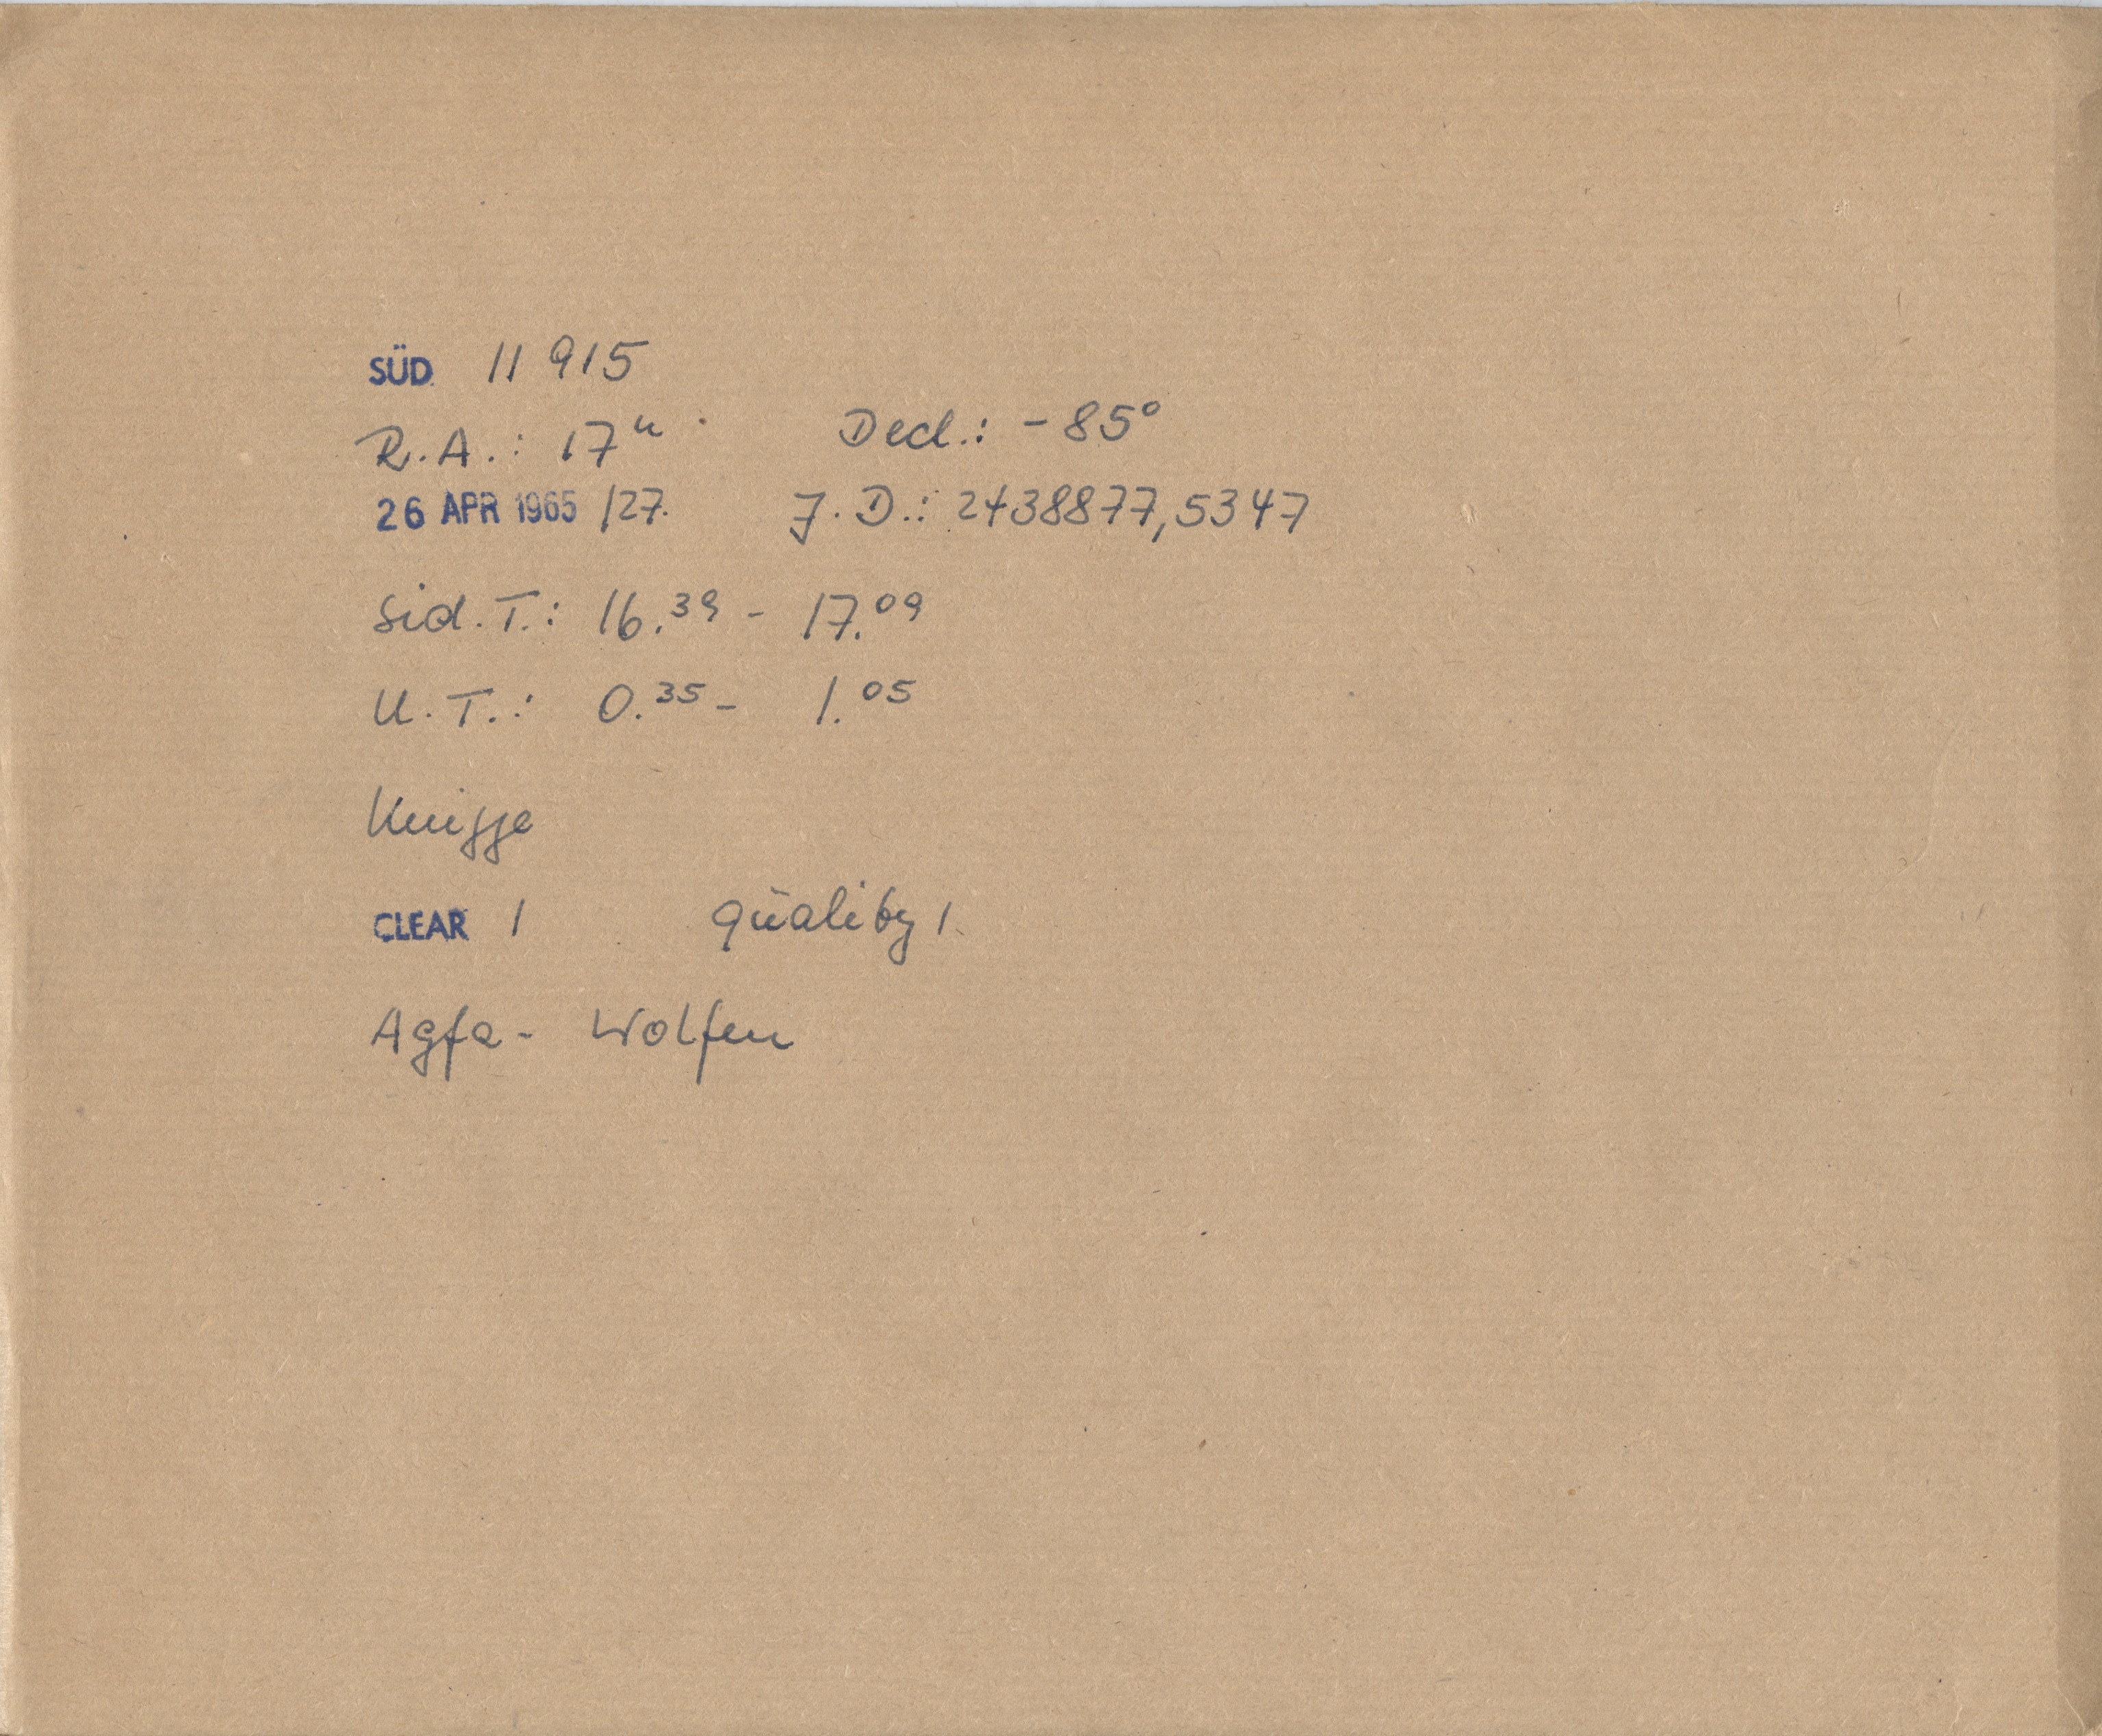 SÜD 11 915
R.A.: 17ʰ Decl.: - 85°
26 APR 1965 /27. J.D.: 2438877,5347
Sid.T.: 16.³⁹ - 17.⁰⁹
U.T.: 0.³⁵ - 1.⁰⁵
Knigge
CLEAR 1 Quality 1
Agfa - Wolfen